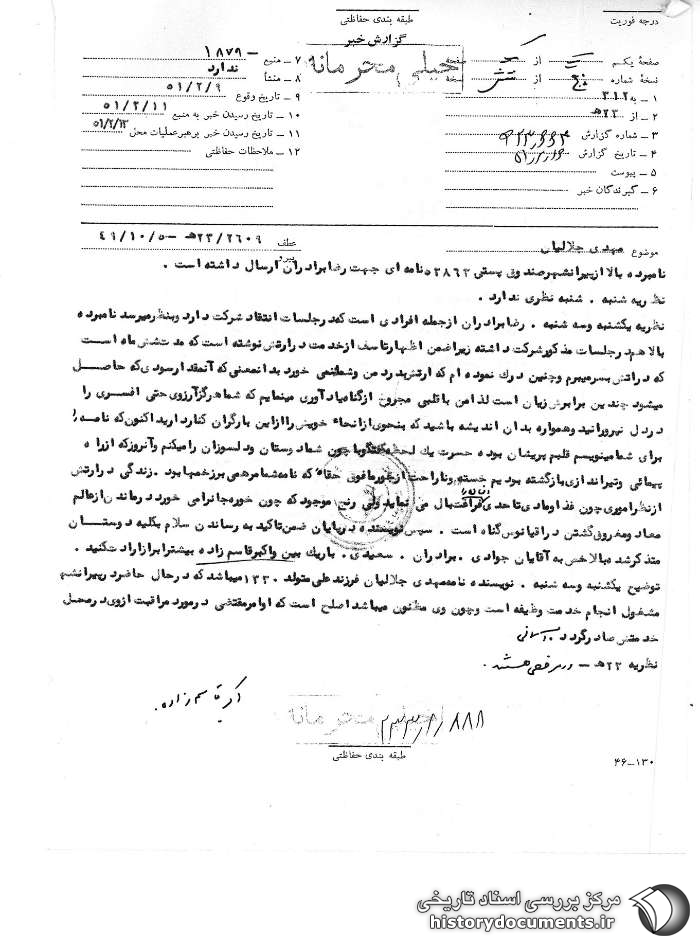 درجه فوریت
طبقه بندی حفاظتی
گزارش خبر
خیلی محرمانه
صفحهٔ یکم از صفحه
نسخهٔ شماره پنج از شش نسخه
۱ ـ به ۳۱۲
۲ ـ از ۲۳هـ
۳ ـ شماره گزارش
۴ ـ تاریخ گزارش
۵ ـ پیوست
۶ ـ گیرندگان خبر
۷ ـ منبع ۱۸۷۹ـ
۸ ـ منشأ ندارد
۹ ـ تاریخ وقوع ۵۱/۲/۹
۱۰ ـ تاریخ رسیدن خبر به منبع ۵۱/۲/۱۱
۱۱ ـ تاریخ رسیدن خبر برهبرعملیات محل ۵۱/۲/۱۳
۱۲ ـ ملاحظات حفاظتی
موضوع مهدی جلالیان
عطف ۲۳/۲۶۰۹هـ ـ ۴۹/۱۰/۵
پیرو
نامبرده بالا از پیرانشهر صندوق پستی ۵۲۸۶۳ نامه ای جهت رضا برادران ارسال داشته است .
نظریه شنبه . شنبه نظری ندارد .
نظریه یکشنبه وسه شنبه . رضا برادران ازجمله افرادی است که در جلسات انتقاد شرکت دارد وبنظر میرسد نامبرده
بالا هم در جلسات مذکور شرکت داشته زیرا ضمن اظهار تاسف از خدمت در ارتش نوشته است که مدت شش ماه است
که در ارتش بسر میبرم وچنین درک نموده ام که ارتش بدرد من وشما نمی خورد بدانمعنی که آنقدر ارسودی که حاصل
میشود چندین برابرش زیان است لذا من با قلبی مجروح از گناه یادآوری مینمایم که شما هرگز آرزوی حتی افسری را
در دل نپرورانید وهمواره بدان اندیشه باشید که بنحوی از انحاء خویش را از این بار گران کنار دارید اکنون که نامه را
برای شما مینویسم قلبم پریشان بوده حسرت یک لحظه گفتگو با چون شما دوستان ودلسوزان را میکنم وآنروز که از راه
پیمائی وتیراندازی بازگشته بودیم خسته وناراحت از جور مافوق حقا که نامه شما مرهمی برزخمها بود . زندگی در ارتش
از نظر اموری چون غذا ومادی تا حدی فراغت بال می نماید ولی رنج موجود که چون خوره جانرا می خورد درماندن از عالم
معاد ومغروق گشتن در اقیانوس گناه است . سپس نویسنده در پایان ضمن تاکید به رساندن سلام بکلیه دوستان
متذکر شده بالاخص به آقایان جوادی . برادران . سعیدی . باریک بین واکبر قاسم زاده بیشتر ابراز ارادت کنید .
توضیح یکشنبه وسه شنبه . نویسنده نامه مهدی جلالیان فرزند علی متولد ۱۳۳۰ میباشد که در حال حاضر در پیرانشهر
مشغول انجام خدمت وظیفه است وچون وی مظنون میباشد اصلح است که اوامر مقتضی در مورد مراقبت از وی در محل
خدمتش صادر گردد .
نظریه ۲۳هـ ـ
اکبر قاسم زاده .
خیلی محرمانه
طبقه بندی حفاظتی
۴۶ـ۱۳۰
مرکز بررسی اسناد تاریخی
historydocuments.ir